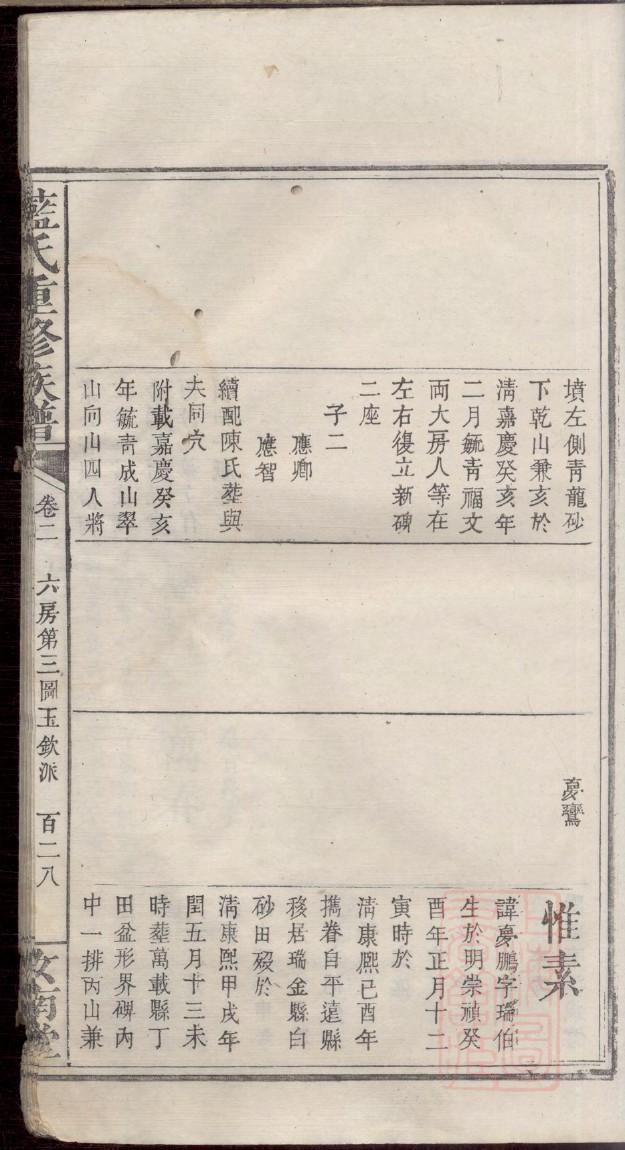 墳左側青龍砂
下乾山兼亥於
淸嘉慶癸亥年
二月毓靑福文
両大房人等在
左右復立新碑
二座
子二
應卿
應智
續配陳氏塟與
夫同穴
附載嘉慶癸亥
年毓靑成山翠
山向山四人將
夢鸞
惟素
諱夢鵬字瑞伯
生於明崇禎癸
酉年正月十二
寅時於
淸康熙己酉年
携眷自平遠縣
移居瑞金縣白
砂田歿於
淸康熙甲戌年
閏五月十三未
時塟萬載縣丁
田盆形界碑內
中一排丙山兼
藍氏重修族譜
卷二
六房第三圖玉欽派
百二八
汝南堂